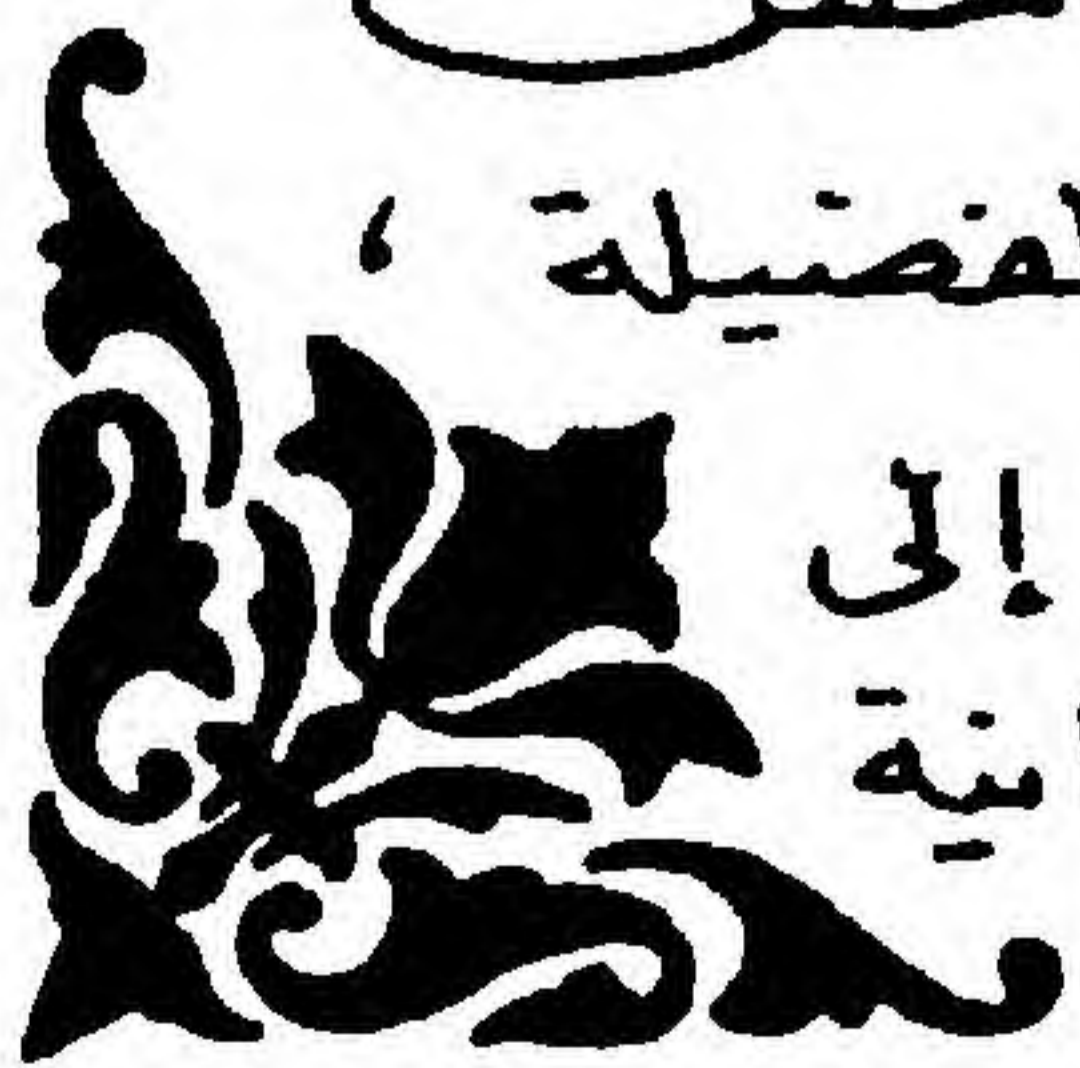 لفضيلة ،
إلى
نية